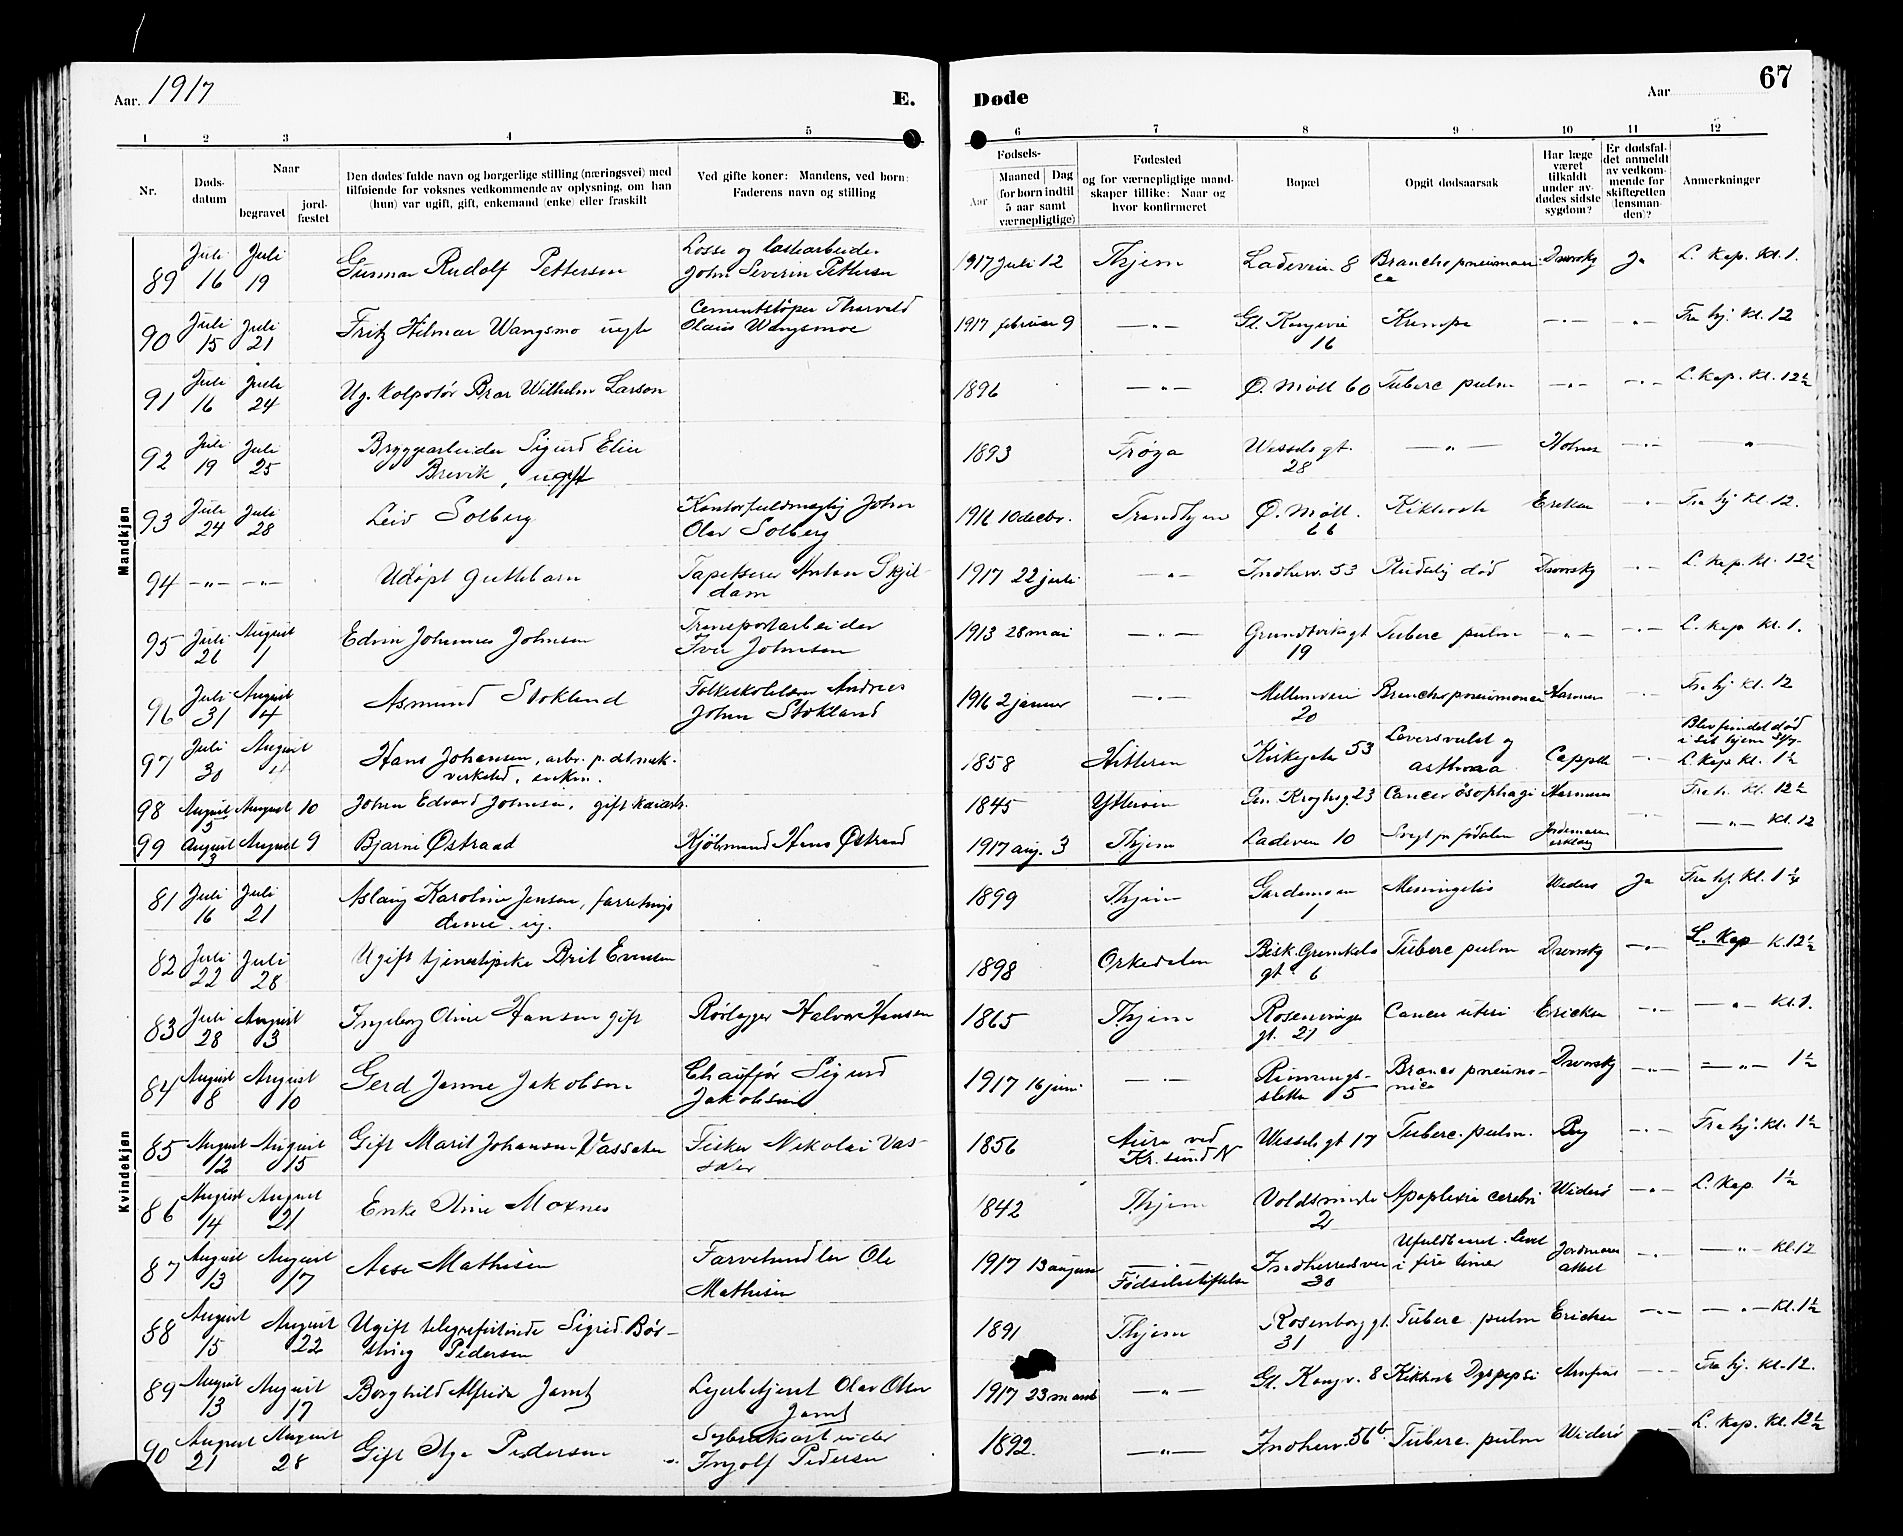 Aar. 1917
E. Døde
Aar
67
1 2 3 4 5 6 7 8 9 10 11 12
Nr.
Døds-
datum
Naar
begravet
jord-
fæstet
Den dødes fulde navn og borgerlige stilling (næringsvei) med
tilføiende for voksnes vedkommende av oplysning, om han
(hun) var ugift, gift, enkemand (enke) eller fraskilt
Ved gifte koner: Mandens, ved børn:
Faderens navn og stilling
Fødsels-
Aar
Maaned Dag
(for børn indtil
5 aar samt
værnepligtige)
Fødested
og for værnepligtige mand-
skaper tillike: Naar og
hvor konfirmeret
Bopæl
Opgit dødsaarsak
Har læge
været
tilkaldt
under av-
dødes sidste
sygdom?
Er dødsfal-
det anmeldt
av vedkom-
mende for
skifteretten
(lensman-
den)?
Anmerkninger
Mandkjøn
89 Juli 16 Juli 19 Gunnar Rudolf Pettersen Losse og lastearbeider John Severin Pettersen 1917 Juli 12 Thjem Ladeveien 8 Bronchopneumoni Ja L. Kap. Kl. 1.
90 Juli 15 Juli 21 Fritz Hilmar Wangsmo Cementstøper Thorvald Olaus Wangsmoe 1917 februar 9 —„— Gl. Kongevei 16 Krampe —„— —„— Fra hj. Kl. 12
91 Juli 16 Juli 24 Ug. Kolportør Brar Wilhelm Larson 1896 —„— Ø. Møll 60 Tuberc pulm —„— —„— L. Kap. Kl. 12½
92 Juli 19 Juli 25 Bryggearbeider Sigurd Elias Brevik, ugift 1893 Frøya Wessels gt. 28 —„— —„— —„—
93 Juli 24 Juli 28 Leiv Solberg Kontorfuldmægtig John Olav Solberg 1916 10 decbr. Trondhjem Ø. Møll. 66 Kikhoste —„— Fra hj Kl. 12.
94 —„— —„— Udøpt guttebarn Tapetserer Anton Skjeldam 1917 22 juli —„— Indherv. 53 Pludselig død —„— L. Kap. Kl. 12½
95 Juli 26 August 1 Edvin Johannes Johnsen Transportarbeider Iver Johnsen 1913 28 mai —„— Grundtvigs gt 19 Tuberc pulm —„— —„— L. Kap Kl. 1.
96 Juli 31 August 4 Asmund Stokland Folkeskolelærer Andreas Johan Stokland 1916 2 januar —„— Mellemveien 20 Bronchopneumoni —„— Fra hj Kl. 12
97 Juli 30 August Hans Johansen, arb. p. det mek. verksted, enkem. 1858 Hitteren Kirkegaten 53 Leversvulst og asthma Cappelen —„— Blev fundet død i sit hjem L. Kap Kl. 1½
98 August 3 August 10 Johan Edvard Johnsen, gift 1845 Ytterøen Gen. Kroghs g. 23 Cancer øsophagi Kl. 12½
99 August 3 August 9 Bjarne Østraad Kjøbmand Hans Østraad 1917 aug. 3 Thjem Ladeveien 10 —„— —„— Kl. 12
Kvindekjøn
81 Juli 16 Juli 21 Aslaug Karoline Jensen, forretningsdame ug. 1899 Thjem Gardemoen 1 Meningitis Ja Fra hj. Kl. 1½
82 Juli 22 Juli 28 Ugift tjenestepike Brit Evensen 1898 Orkedalen Bisk. Grimkels gt. 6 Tuberc pulm —„— L. Kap K. 12½
83 Juli 28 August 3 Ingeborg Oline Hansen gift Rørlægger Halvor Hansen 1865 Thjem Rosenvinges gt. 21 Cancer uteri —„— —„— Kl. 1.
84 August 8 August 10 Gerd Janne Jakobsen Chauffør Sigurd Jakobsen 1917 16 juni —„— 5 —„— —„— 1½
85 August 12 August 15 Gift Marit Johansen Vassdalen Fisker Nikolai 1856 Aure ved Kr.sund N Wessels gt 17 Tuberc. pulm. —„— Fra hj. Kl. 1½
86 August 14 August 21 Enke Oline Moxnes 1842 Thjem 2 Apoplexia cerebri Widerö —„— L. Kap 1½
87 August 13 August 17 Aase Mathisen Farvehandler Ole Mathisen 1917 13 august Fødselsstiftelsen Indherredsveien 30 Ufuldbaaret. Levet i fire timer Jordmorens attest —„— —„— Kl. 12
88 August 15 August 22 Ugift telegrafistinde Sigrid Pedersen 1891 Thjem Rosenborg gt. 31 Tuberc. pulm —„— —„— Kl. 1½
89 August 13 August 17 Borghild Alfrida Jamt Olav Olsen Jamt 1917 23 marts —„— Gl. Kongv. 8 Kikhoste Dyspepsi —„— Fra hj. Kl. 12.
90 August 21 August 28 Gift Olga Pedersen Ingolf Pedersen 1892. —„— Indherv. 56b Tuberc. pulm Widerö —„— L. Kap. Kl. 12½